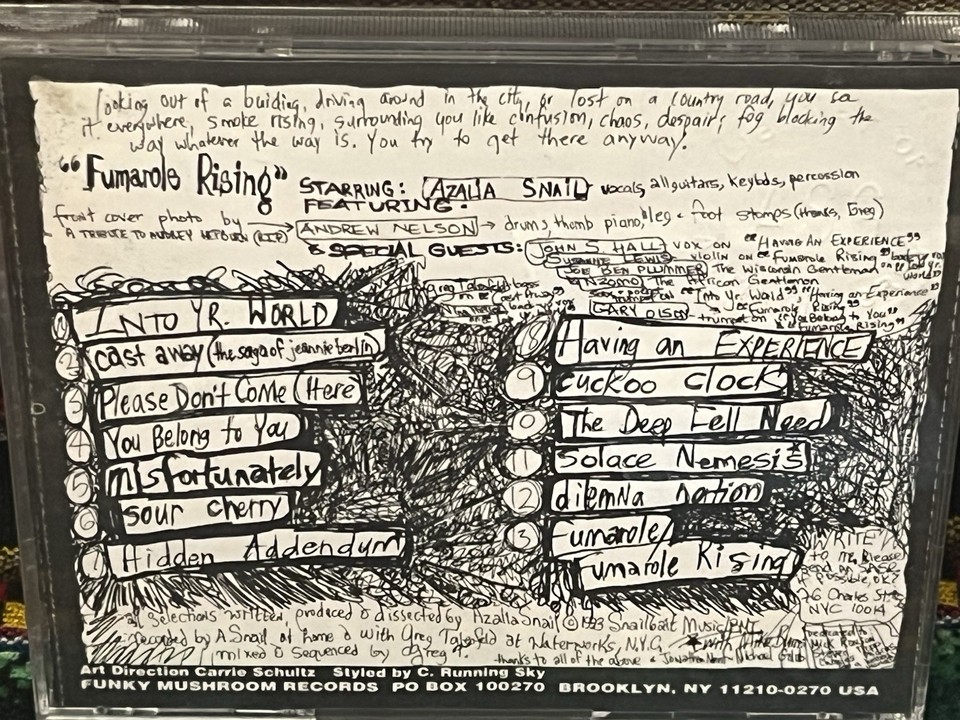 Looking out of a buiding, driving around in the city, or lost on a country road, you see
it everywhere, smoke rising, surrounding you like confusion, chaos, despair, fog blocking the
way whatever the way is. You try to get there anyway.
"Fumarole Rising" STARRING: AZALIA SNAIL vocals, all guitars, keybds, percussion
FEATURING:
front cover photo by ANDREW NELSON → drums, thumb piano, leg & foot stomps (thanks, Greg)
A TRIBUTE TO AUDREY HEPBURN (RIP)
& SPECIAL GUESTS: JOHN S. HALL vox on "HAVING AN EXPERIENCE"
SUZANNE LEWIS violin on "Fumarole Rising"
JOE BEN PLUMMER The Wisconsin Gentleman on
NZOMO The African Gentleman
"Into Yr. World" "Having an Experience"
& "Fumarole Rising"
GARY OLSON trumpet on "You Belong to You"
& "Fumarole Rising"
1 INTO YR. WORLD
2 cast away (the saga of jeannie berlin)
3 Please Don't Come (Here)
4 You Belong to You
5 misfortunately
6 sour cherry
7 Hidden Addendum
8 Having an EXPERIENCE
9 cuckoo clock
10 The Deep Fell Need
11 Solace Nemesis
12 dilemNa notion
13 Fumarole/
Fumarole Rising
WRITE
to me, please
send an SASE
if possible, ok?
76 Charles St.
NYC 10014
all selections written, produced & dissected by Azalia Snail © 1993 Snailbait Music/BMI
recorded by A Snail at home & with Greg at Waterworks, N.Y.C.
mixed & sequenced by Greg
thanks to all of the above &
Art Direction Carrie Schultz Styled by C. Running Sky
FUNKY MUSHROOM RECORDS PO BOX 100270 BROOKLYN, NY 11210-0270 USA